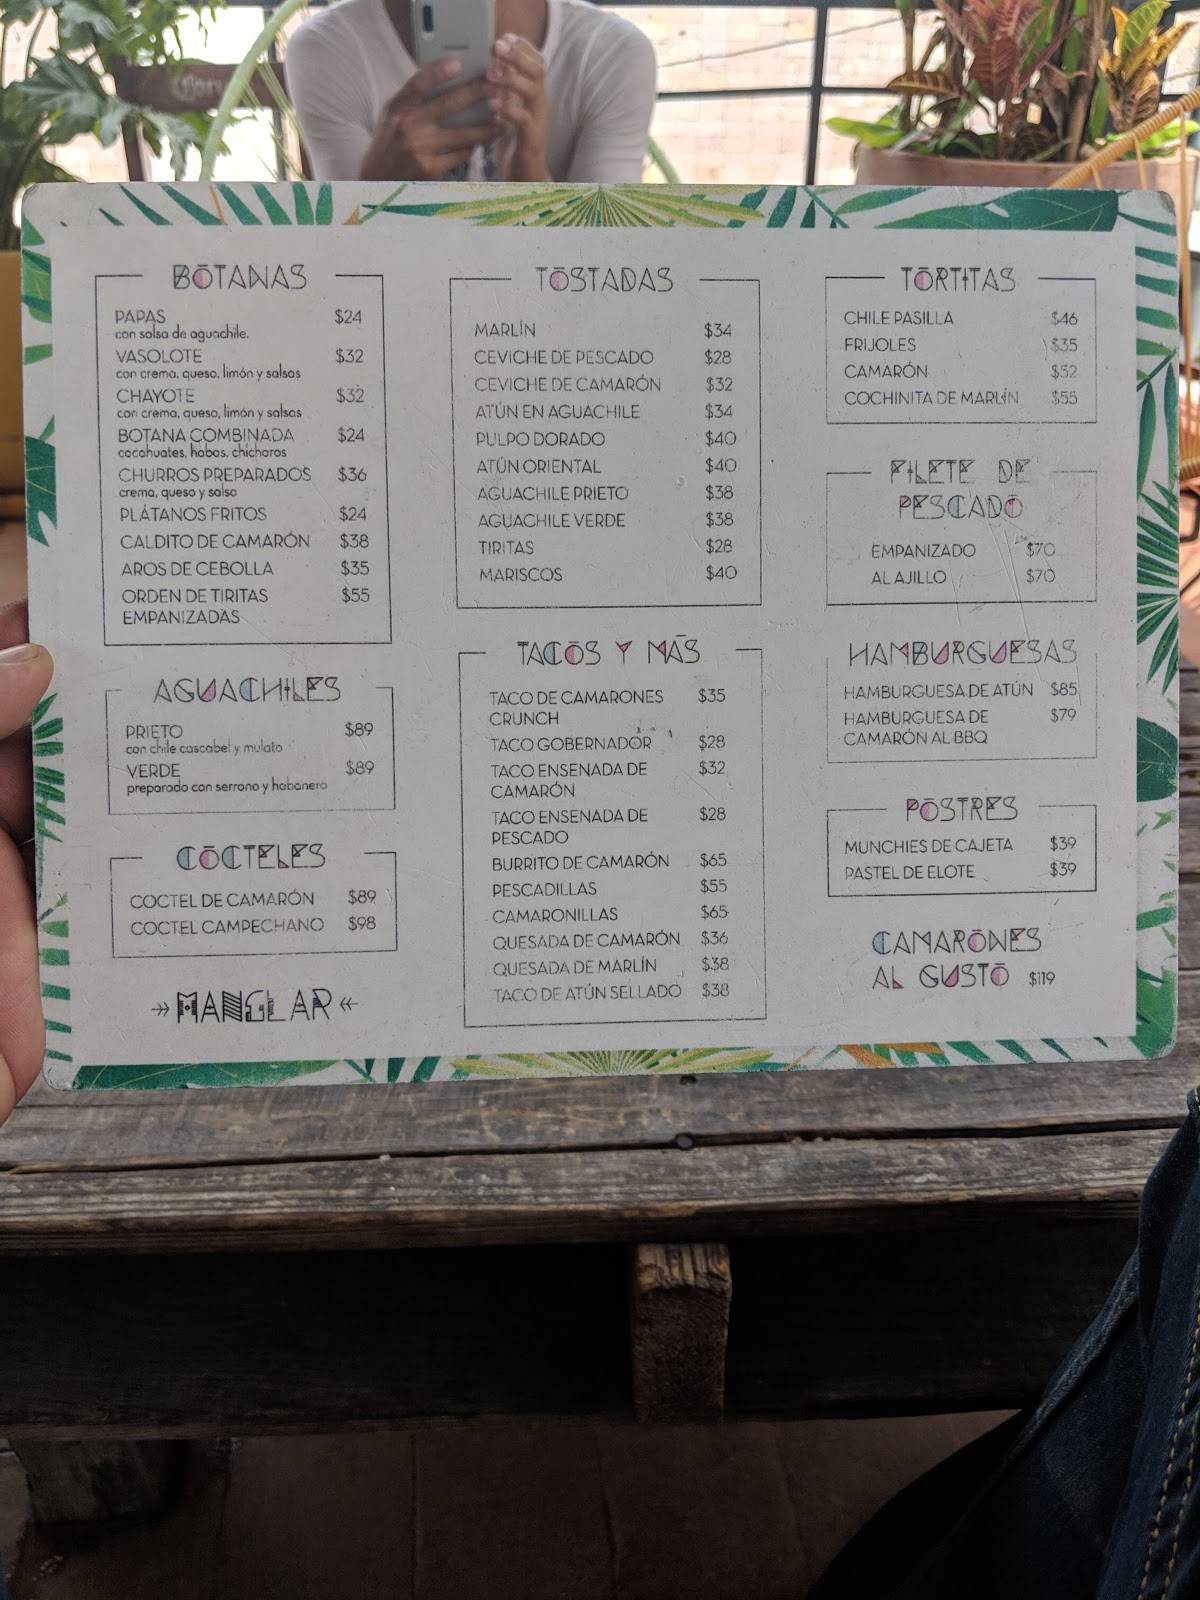 BOTANAS
PAPAS $24
con salsa de aguachile.
VASOLOTE $32
con crema, queso, limón y salsas
CHAYOTE $32
con crema, queso, limón y salsas
BOTANA COMBINADA $24
cacahuates, habas, chícharos
CHURROS PREPARADOS $36
crema, queso y salsa
PLÁTANOS FRITOS $24
CALDITO DE CAMARÓN $38
AROS DE CEBOLLA $35
ORDEN DE TIRITAS $55
EMPANIZADAS
AGUACHILES
PRIETO $89
con chile cascabel y mulato
VERDE $89
preparado con serrano y habanero
CÓCTELES
COCTEL DE CAMARÓN $89
COCTEL CAMPECHANO $98
MANGLAR
TOSTADAS
MARLÍN $34
CEVICHE DE PESCADO $28
CEVICHE DE CAMARÓN $32
ATÚN EN AGUACHILE $34
PULPO DORADO $40
ATÚN ORIENTAL $40
AGUACHILE PRIETO $38
AGUACHILE VERDE $38
TIRITAS $28
MARISCOS $40
TACOS Y MÁS
TACO DE CAMARONES $35
CRUNCH
TACO GOBERNADOR $28
TACO ENSENADA DE $32
CAMARÓN
TACO ENSENADA DE $28
PESCADO
BURRITO DE CAMARÓN $65
PESCADILLAS $55
CAMARONILLAS $65
QUESADA DE CAMARÓN $36
QUESADA DE MARLÍN $38
TACO DE ATÚN SELLADO $38
TORTITAS
CHILE PASILLA $46
FRIJOLES $35
CAMARÓN $52
COCHINITA DE MARLÍN $55
FILETE DE
PESCADO
EMPANIZADO $70
AL AJILLO $70
HAMBURGUESAS
HAMBURGUESA DE ATÚN $85
HAMBURGUESA DE $79
CAMARÓN AL BBQ
POSTRES
MUNCHIES DE CAJETA $39
PASTEL DE ELOTE $39
CAMARONES
AL GUSTO $119